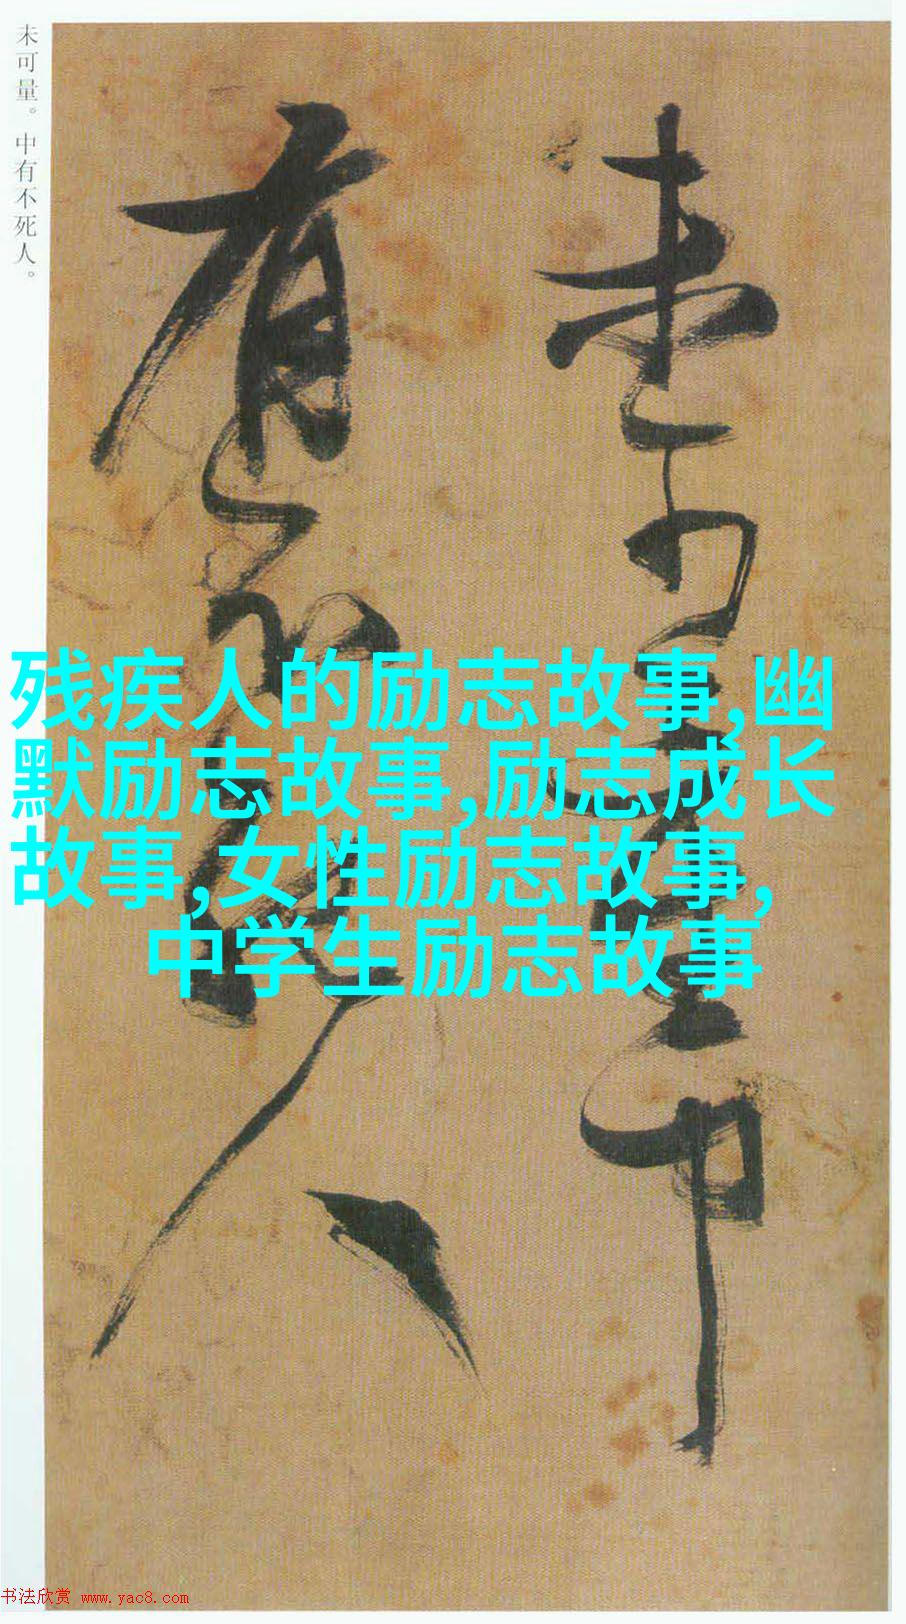 未可量。中有不死人。
未可量中
有不死人
残疾人的励志故事,幽
默励志故事,励志成长
故事,女性励志故事,
中学生励志故事
书法欣赏 www.yac8.com